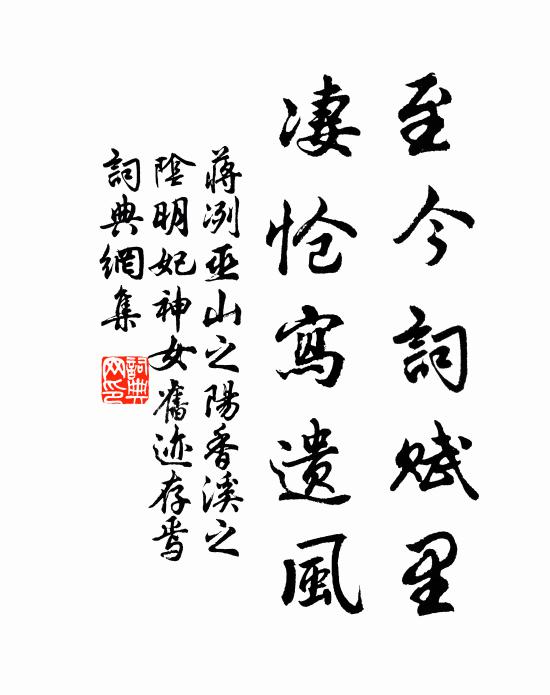 至今詞赋里
凄怆寫遺風
蔣洌巫山之陽香溪之
陰明妃神女舊迹存焉
詞典網集
詞典网印